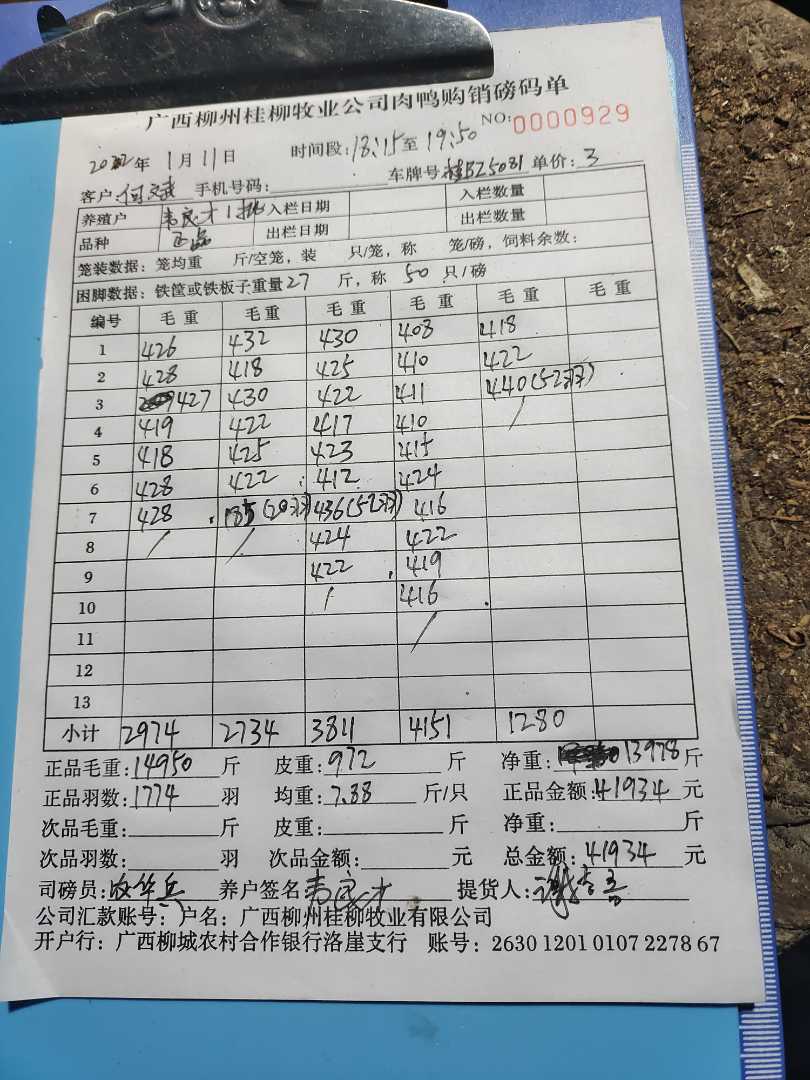 广西柳州桂柳牧业公司肉鸭购销磅码单
NO: 0000929
2022年 1月11日 时间段: 18:15至 19:50
客户: 何文斌 手机号码: 车牌号: 桂BZ5031 单价: 3
养殖户 韦良才 1批 入栏日期 入栏数量
品种 正品 出栏日期 出栏数量
笼装数据: 笼均重 斤/空笼, 装 只/笼, 称 笼/磅, 饲料余数:
困脚数据: 铁筐或铁板子重量 27 斤, 称 50 只/磅
编号 毛重 毛重 毛重 毛重 毛重 毛重
1 426 432 430 408 418
2 428 418 425 410 422
3 427 430 422 411 440(52羽)
4 419 422 417 410 /
5 418 425 423 415
6 428 422 412 424
7 428 185(20羽) 436(52羽) 416
8 / / 424 422
9 422 419
10 / 416
11 /
12
13
小计 2974 2734 3811 4151 1280
正品毛重: 14950 斤 皮重: 972 斤 净重: 13978 斤
正品羽数: 1774 羽 均重: 7.88 斤/只 正品金额: 41934 元
次品毛重: 斤 皮重: 斤 净重: 斤
次品羽数: 羽 次品金额: 元 总金额: 41934 元
司磅员: 养户签名 韦良才 提货人:
公司汇款账号: 户名: 广西柳州桂柳牧业有限公司
开户行: 广西柳城农村合作银行洛崖支行 账号: 2630 1201 0107 2278 67